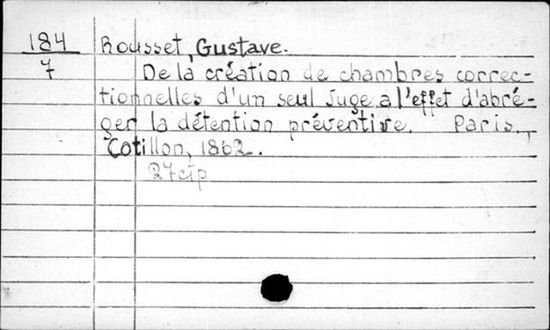 184 Rousset, Gustave.
7 De la création de chambres correc-
tionnelles d'un seul juge a l'effet d'abré-
ger la détention préventive. Paris.,
Cotillon, 1862.
27cip